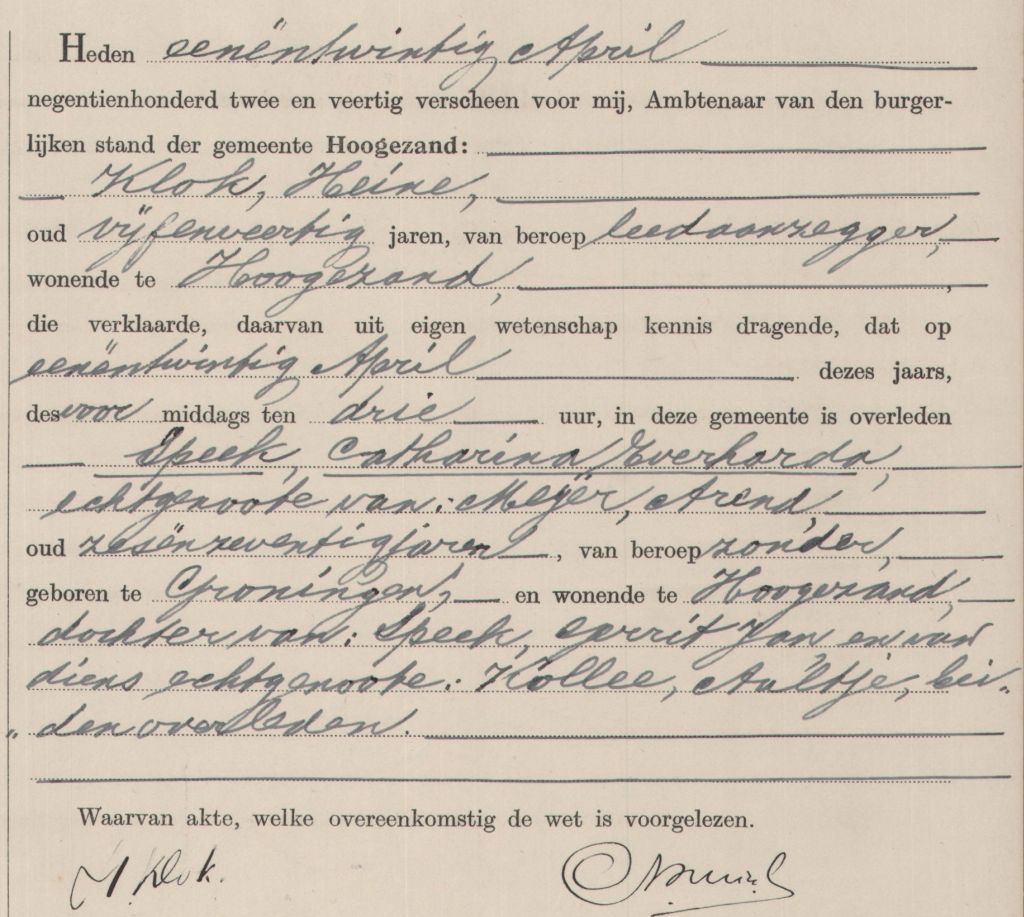 Heden eenëntwintig April
negentienhonderd twee en veertig verscheen voor mij, Ambtenaar van den burger-
lijken stand der gemeente Hoogezand:
Klok, Heine,
oud vijfenveertig jaren, van beroep leedaanzegger,
wonende te Hoogezand,
die verklaarde, daarvan uit eigen wetenschap kennis dragende, dat op
eenëntwintig April dezes jaars,
des voor middags ten drie uur, in deze gemeente is overleden
Speek, Catharina Everharda,
echtgenoote van: Meijer, Arend,
oud zesënzeventig jaren, van beroep zonder,
geboren te Groningen, en wonende te Hoogezand,
dochter van: Speek, Gerrit Jan en van
diens echtgenoote: Kollee, Aaltje, bei„
„den overleden.
Waarvan akte, welke overeenkomstig de wet is voorgelezen.
H. Klok.